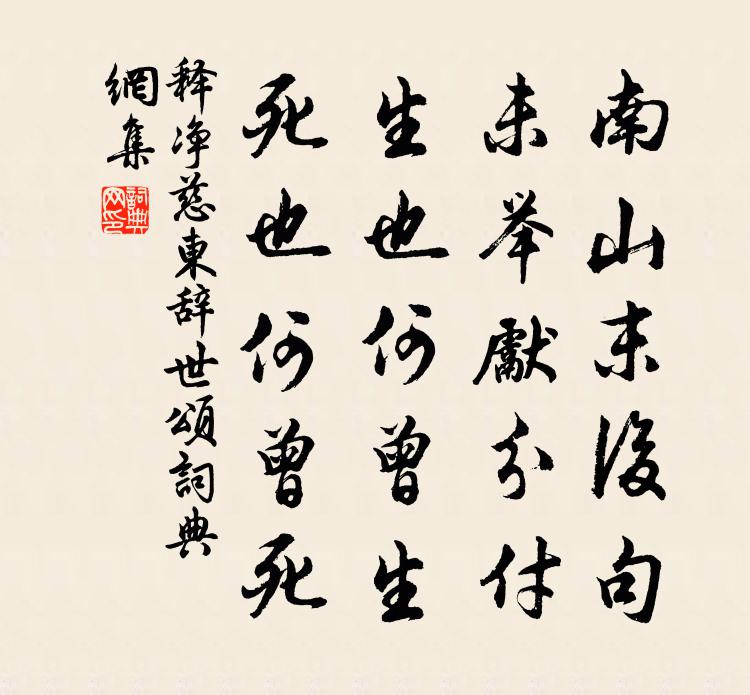 南山末後句
未举獻分付
生也何曾生
死也何曾死
释净慈東辞世頌詞典
網集
詞典
网印